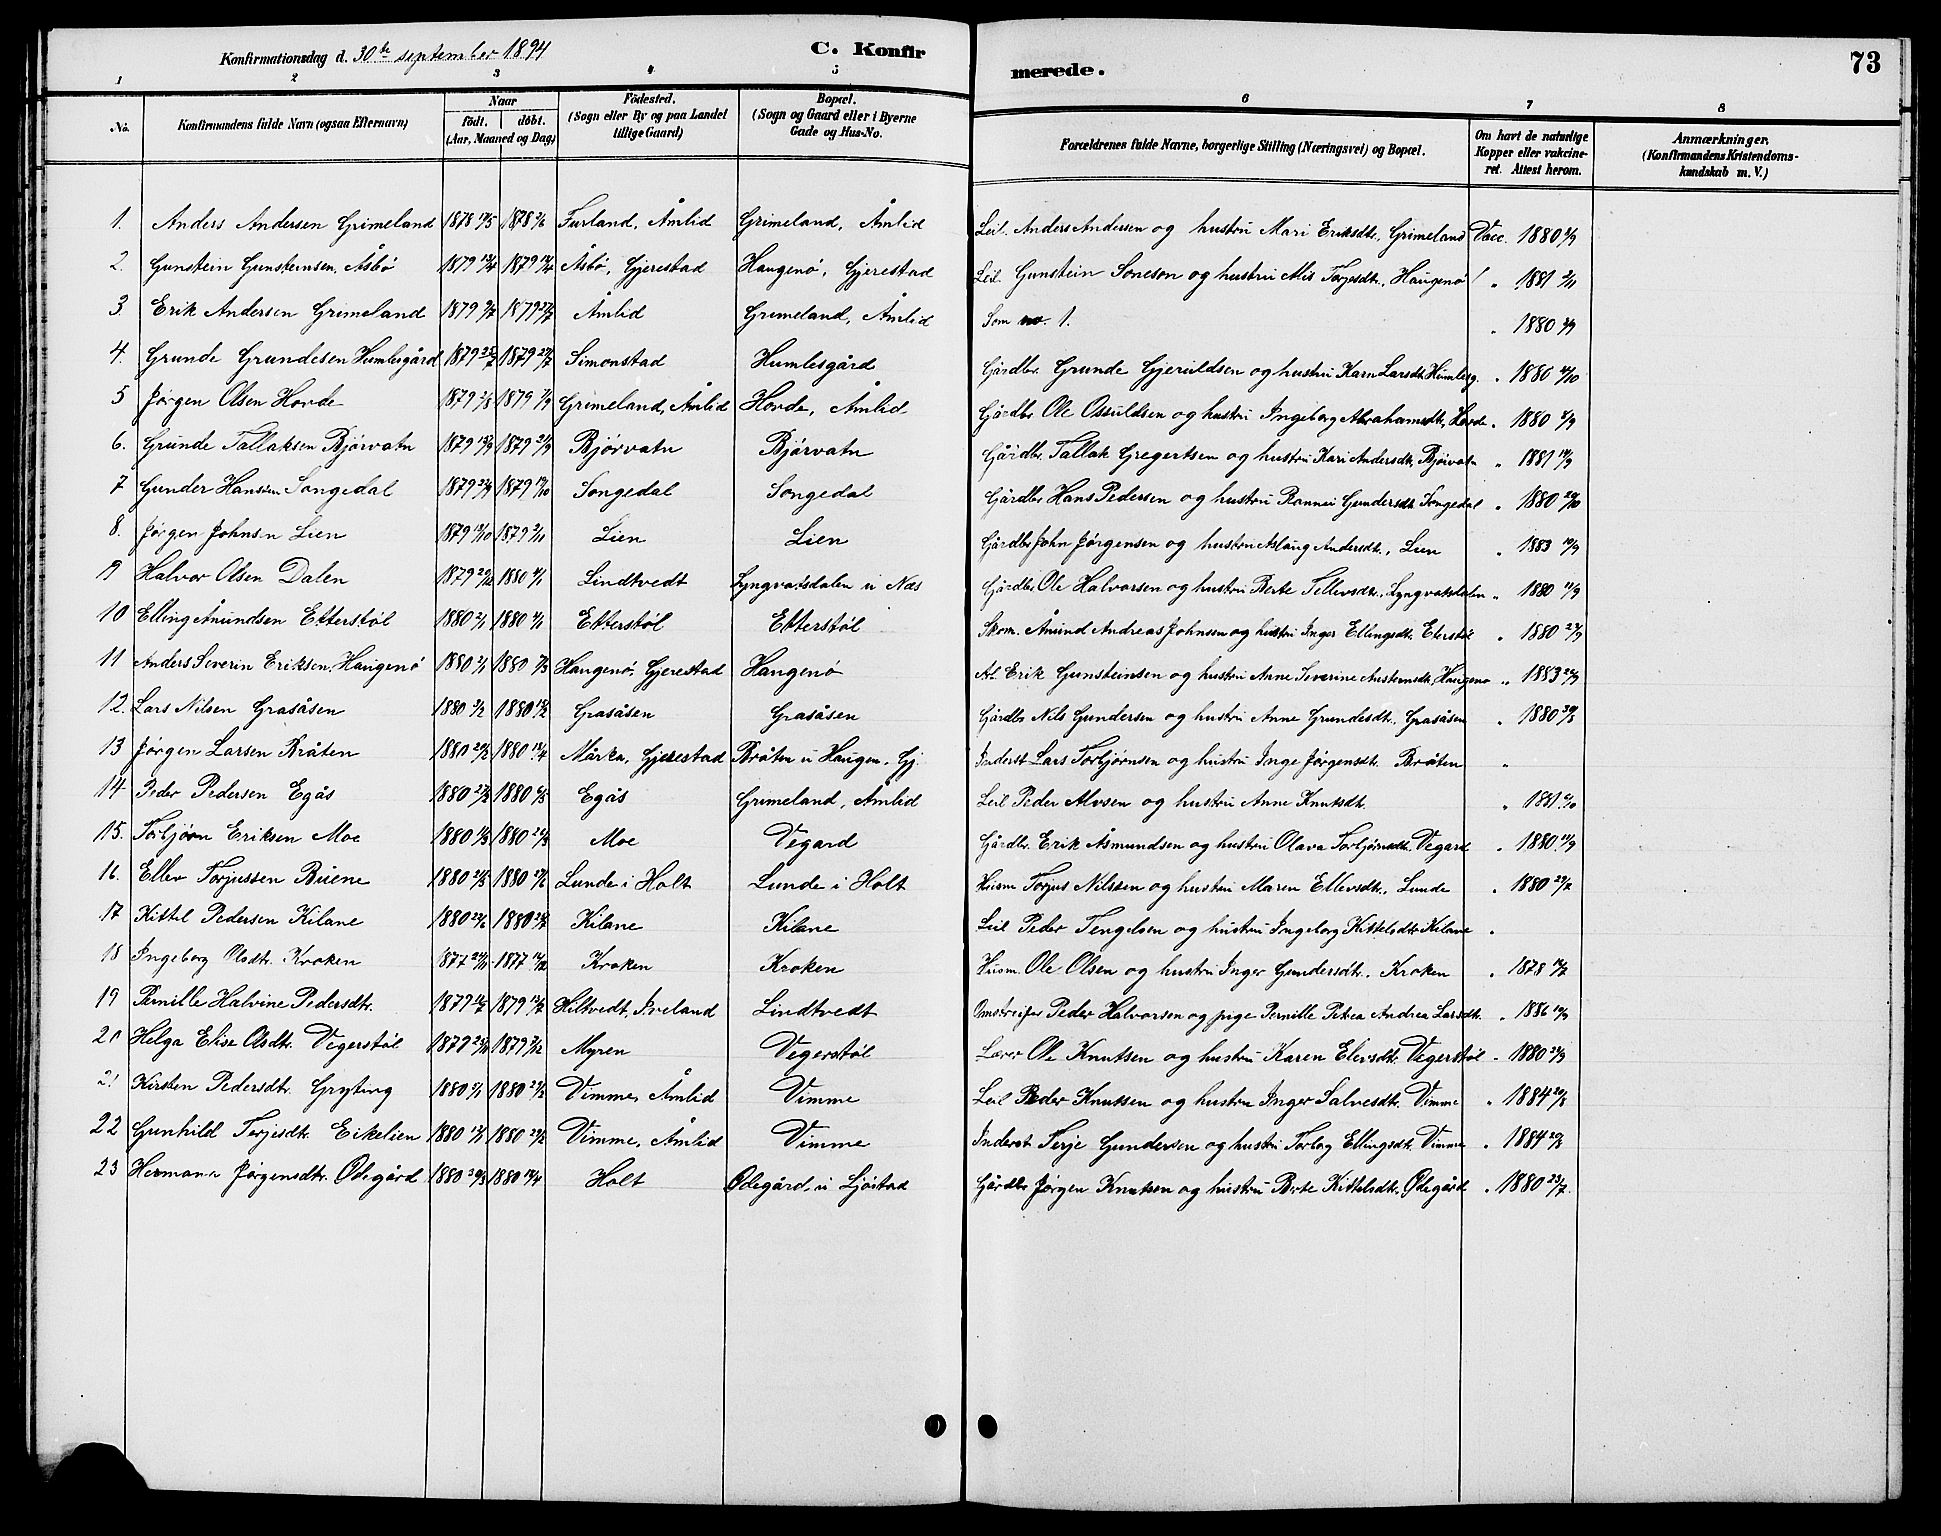 Konfirmationsdag d. 30te september 1894
C. Konfirmerede.
73
1 2 3 4 5 6 7 8
No. Konfirmandens fulde Navn (ogsaa Efternavn) Naar født. døbt. (Aar, Maaned og Dag) Fødested. (Sogn eller By og paa Landet tillige Gaard) Bopæl. (Sogn og Gaard eller i Byerne Gade og Hus-No. Forældrenes fulde Navne, borgerlige Stilling (Næringsvei) og Bopæl. Om havt de naturlige Kopper eller vakcineret. Attest herom. Anmærkninger. (Konfirmandens Kristendomskundskab m. V.)
1. Anders Andersen Grimeland 1878 1878 Furland, Åmlid Grimeland, Åmlid Leil. Anders Andersen og hustru Mari Eriksdtr., Grimeland Vacc. 1880
2. Gunstein Gunsteinsen, Åsbø 1879 1879 Åsbø, Gjerestad Haugenø, Gjerestad Leil. Gunstein Soneson og hustru Alis Terjesdtr., Haugenø " 1881
3 Erik Andersen Grimeland 1879 1879 Åmlid Grimeland, Åmlid Som no. 1. " 1880
4. Grunde Grundesen Humlesgård 1879 1879 Simonstad Humlesgård Gårdbr. Grunde Gjeruldsen og hustru Karn Larsdtr. Humlesg. " 1880
5 Jørgen Olsen Hovde 1879 1879 Grimeland, Åmlid Hovde, Åmlid Gårdbr Ole Ossuldsen og hustru Ingeborg Abrahamsdtr, Hovde " 1880
6. Grunde Tallaksen Bjørvatn 1879 1879 Bjørvatn Bjørvatn Gårdbr. Tallak Gregertsen og hustru Kari Andersdtr, Bjørvatn " 1881
7 Gunder Hansen Songedal 1879 1879 Songedal Songedal Gårdbr Hans Pedersen og hustru Ronnei Gundersdtr Songedal " 1880
8. Jørgen Johnsn Lien 1879 1879 Lien Lien Gårdbr John Jørgensen og hustru Aslaug Andersdtr., Lien " 1883
9 Halvor Olsen Dalen 1879 1880 Lindtvedt Lyngvatsdalen u Næs Gårdbr Ole Halvorsen og hustru Berte Tellevsdtr., Lyngvatsdalen " 1880
10 Elling Åmundsen Etterstøl 1880 1880 Etterstøl Etterstøl Skom. Åmund Andreas Johnsen og hustru Inger Ellingsdtr. Eterstøl " 1880
11 Anders Severin Eriksen Haugenø 1880 1880 Haugenø, Gjerestad Haugenø Erik Gunsteinsen og hustru Anne Severine Austensdtr, Haugenø " 1883
12. Lars Nilsen Grasåsen 1880 1880 Grasåsen Grasåsen Gårdbr Nils Gundersen og hustru Anne Grundesdtr., Grasåsen " 1880
13 Jørgen Larsen Bråten 1880 1880 Mårka, Gjerestad Bråten u Haugen, Gj. Inderst Lars Torbjørnsen og hustru Inge Jørgensdtr. Bråten "
14 Peder Pedersen Egås 1880 1880 Egås Grimeland, Åmlid Leil Peder Alvsen og hustru Anne Knutsdtr. " 1881
15. Torbjørn Eriksen Moe 1880 1880 Moe Vegard Gårdbr. Erik Åsmundsen og hustru Olava Torbjørnsdtr. Vegard " 1880
16. Ellev Torjussen Buene 1880 1880 Lunde i Holt Lunde i Holt Husm Torjus Nilssen og hustru Maren Ellevsdtr., Lunde " 1880
17 Kittel Pedersen Kilane 1880 1880 Kilane Kilane Leil Peder Tengelsen og hustru Ingeborg Kittelsdtr Kilane "
18 Ingeborg Olsdtr. Kroken 1877 1877 Kroken Kroken Husm. Ole Olsen og hustru Inger Gundersdtr. Kroken " 1878
19 Pernille Halvine Pedersdtr. 1879 1879 Hiltvedt, Iveland Lindtvedt Omstreifer Peder Halvorsen og pige Pernille Petrea Andrea Larsdtr. " 1886
20 Helga Elise Olsdtr. Vegerstøl 1879 1879 Myren Vegerstøl Lærer Ole Knutsen og hustru Karen Elevsdtr. Vegerstøl " 1880
21 Kirsten Pedersdtr. Gryting 1880 1880 Vimme, Åmlid Vimme Leil Peder Knutsen og hustru Inger Salvesdtr. Vimme " 1884
22 Gunhild Terjesdtr. Eikelien 1880 1880 Vimme, Åmlid Vimme Inderst Terje Gundersen og hustru Torbog Ellingsdtr. Vimme " 1884
23 Hermane Jørgensdtr. Ødegård 1880 1880 Holt Ødegård, u Ljøstad Gårdbr Jørgen Knutsen og hustru Berte Kittelsdtr. Ødegård " 1880